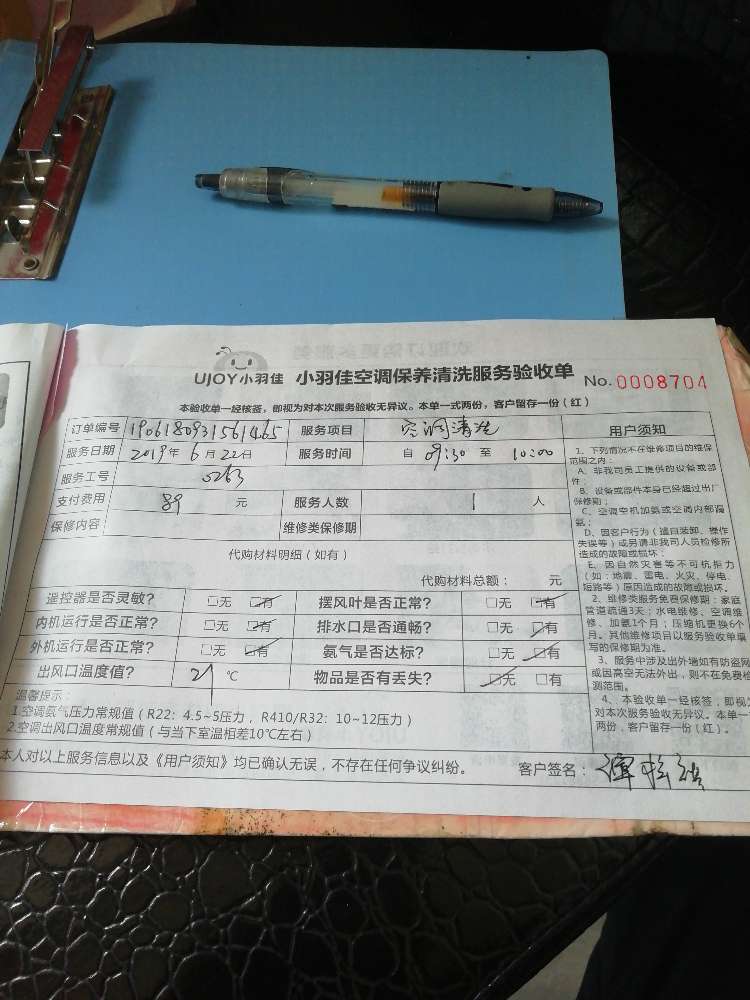 UJOY小羽佳 小羽佳空调保养清洗服务验收单 No.0008704
本验收单一经核签，即视为对本次服务验收无异议。本单一式两份，客户留存一份（红）
订单编号 1906180931561465 服务项目 空调清洗
服务日期 2019年6月22日 服务时间 自 09:30 至 10:00
服务工号 0263
支付费用 89 元 服务人数 1 人
保修内容 维修类保修期
代购材料明细（如有）
代购材料总额： 元
遥控器是否灵敏？ □无 □有 摆风叶是否正常？ □无 □有
内机运行是否正常？ □无 □有 排水口是否通畅？ □无 □有
外机运行是否正常？ □无 □有 氨气是否达标？ □无 □有
出风口温度值？ ℃ 物品是否有丢失？ □无 □有
温馨提示：
1.空调氨气压力常规值（R22：4.5~5压力，R410/R32：10~12压力）
2.空调出风口温度常规值（与当下室温相差10℃左右）
本人对以上服务信息以及《用户须知》均已确认无误，不存在任何争议纠纷。 客户签名：
用户须知
1、下列情况不在维修项目的维保
范围之内：
A、非我司员工提供的设备或部
件；
B、设备或部件本身已经超过出厂
保修期；
C、空调空机加氨或空调内部漏
氨；
D、因客户行为（擅自装卸、操作
失误等）或另请非我司人员检修所
造成的故障或损坏；
E、因自然灾害等不可抗拒力
（如：地震、雷电、火灾、停电、
短路等）原因造成的故障或损坏。
2、维修类服务免费保修期：家庭
管道疏通3天；水电维修、空调维
修、加氨1个月；压缩机更换6个
月。其他维修项目以服务验收单填
写的保修期为准。
3、服务中涉及出外墙如有防盗网
或因高空无法外出，则不在免费检
测范围。
4、本验收单一经核签，即视为
对本次服务验收无异议。本单一
两份，客户留存一份（红）。